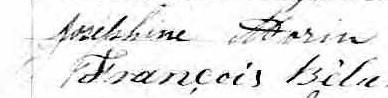 Josephine Morin
François Bélu